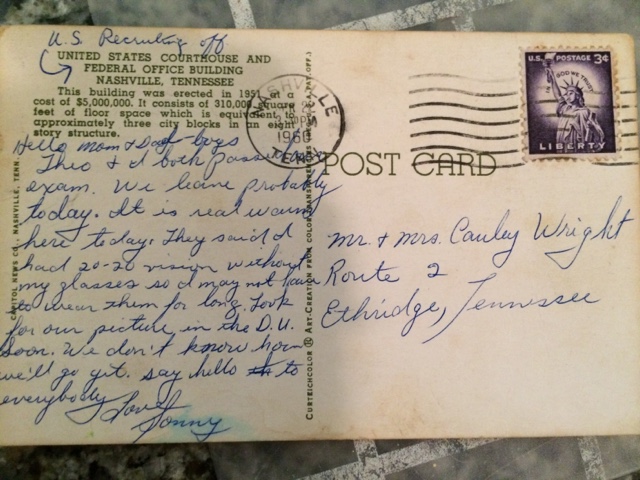 U.S. Recruiting off
UNITED STATES COURTHOUSE AND
FEDERAL OFFICE BUILDING
NASHVILLE, TENNESSEE
This building was erected in 1951 at a
cost of $5,000,000. It consists of 310,000 square
feet of floor space which is equivalent to
approximately three city blocks in an eight
story structure.
Hello Mom & Dad & boys
Theo & I both passed
exam. We leave probably
today. It is real warm
here today. They said I
had 20-20 vision without
my glasses so I may not have
to wear them for long. Look
for our picture in the D.U.
soon. We don't know how
we'll go yet. say hello to
everybody
Love
Sonny
CAPITOL NEWS CO., NASHVILLE, TENN.
CURTEICHCOLOR ® ART-CREATION FROM COLOR TRANSPARENCY (REG. U.S.A. PAT. OFF.)
NASHVILLE
1960
TENN.
POST CARD
U.S. POSTAGE 3¢
IN GOD WE TRUST
LIBERTY
Mr. + Mrs. Cauley Wright
Route 2
Ethridge, Tennessee